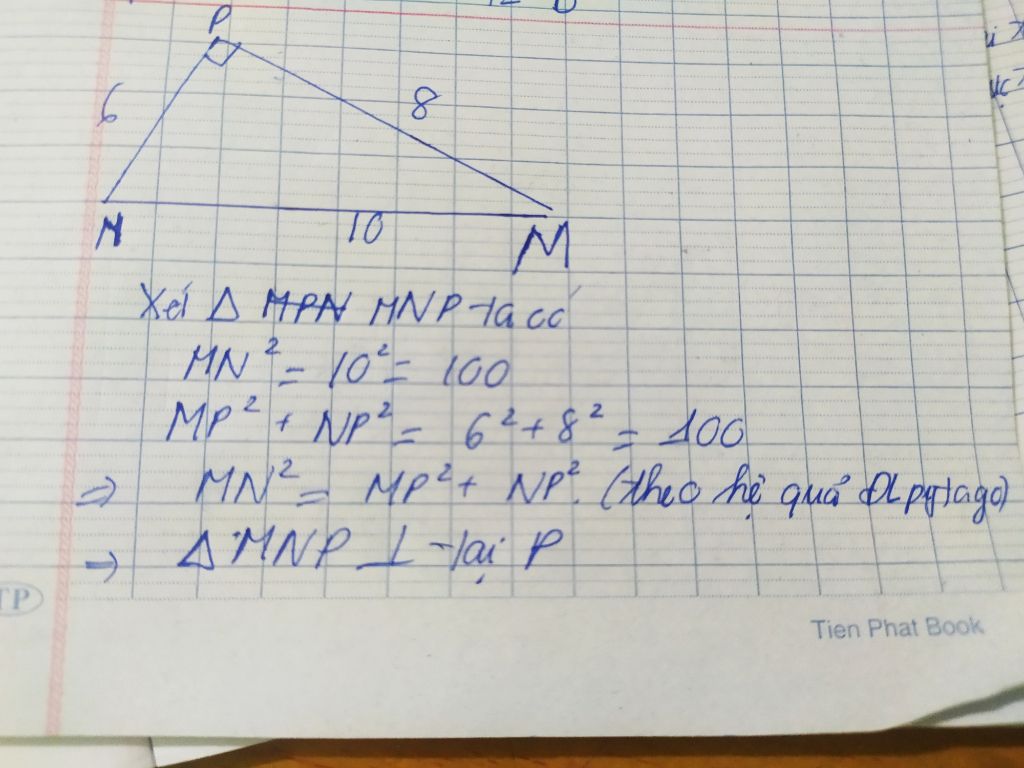 P
6
8
N
10
M
Xét Δ MPN MNP ta có
MN² = 10² = 100
MP² + NP² = 6² + 8² = 100
⇒ MN² = MP² + NP². (theo hệ quả ĐL pytago)
⇒ Δ MNP ⊥ tại P
TP
Tien Phat Book